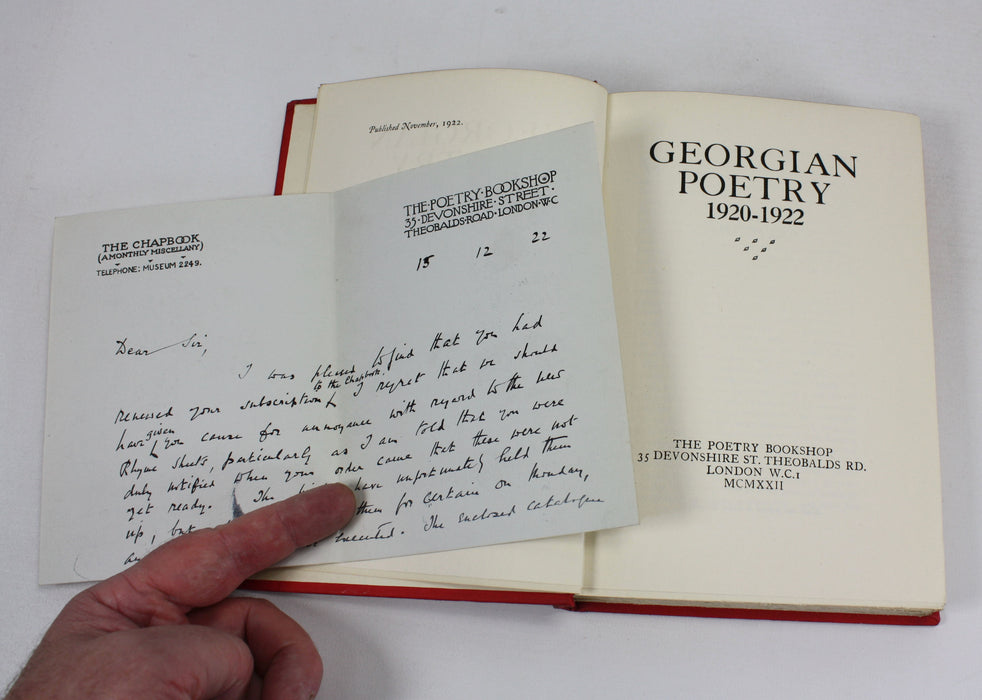 Published November, 1922.
THE CHAPBOOK
(A MONTHLY MISCELLANY)
TELEPHONE: MUSEUM 2249.
THE·POETRY·BOOKSHOP
35·DEVONSHIRE·STREET·
THEOBALDS·ROAD·LONDON·W·C
15 12 22
Dear Sir,
I was pleased to find that you had
to the Chapbook.
renewed your subscription I regret that we should
given
have you cause for annoyance with regard to the new
Rhyme sheets, particularly as I am told that you were
duly notified when your order came that these were not
yet ready. The have unfortunately held them
up, but them for certain on Monday,
executed. The enclosed catalogue
GEORGIAN
POETRY
1920-1922
THE POETRY BOOKSHOP
35 DEVONSHIRE ST. THEOBALDS RD.
LONDON W.C.1
MCMXXII